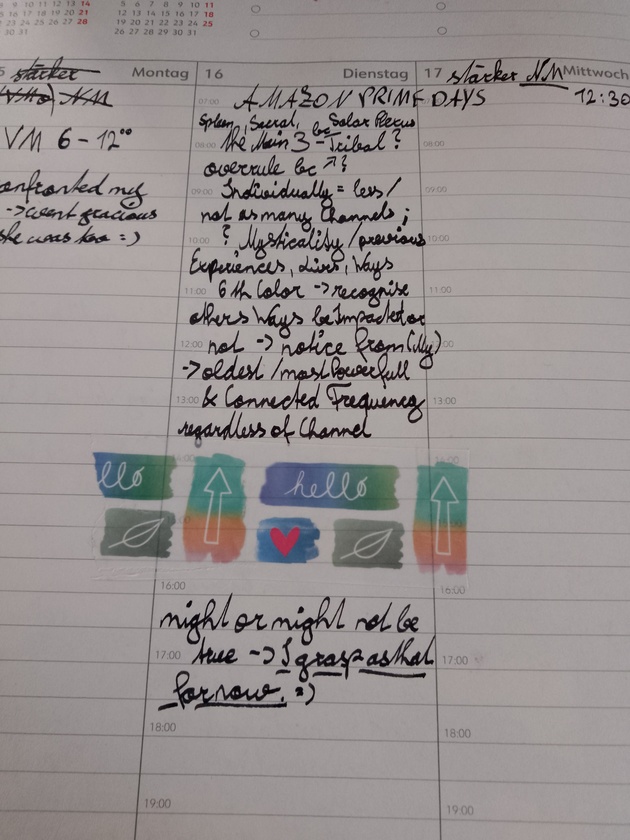 9 10 11 12 13 14
16 17 18 19 20 21
23 24 25 26 27 28
30 31
5 6 7 8 9 10 11
12 13 14 15 16 17 18
19 20 21 22 23 24 25
26 27 28 29 30 31
5 stärker Montag
NM
VM 6 - 12°°
confronted my
-> went gracious
she was too =)
16 Dienstag
07:00 AMAZON PRIME DAYS
Spleen, Sacral, Solar Plexus
08:00 the Main 3 - be Tribal?
overrule bc ↗?
09:00 Individually = less/
not as many Channels;
10:00 ? Mysticality / previous
Experiences, Lives, Ways
11:00 6th Color -> recognise
others Ways be Impacted or
12:00 not -> notice from (My)
-> oldest / most Powerfull
13:00 & Connected Frequency
regardless of Channel
14:00
llo
hello
16:00
might or might not be
17:00 true -> I grasp as that
for now. =)
18:00
19:00
17 stärker NM Mittwoch
12:30
08:00
09:00
10:00
11:00
12:00
13:00
14:00
16:00
17:00
18:00
19:00